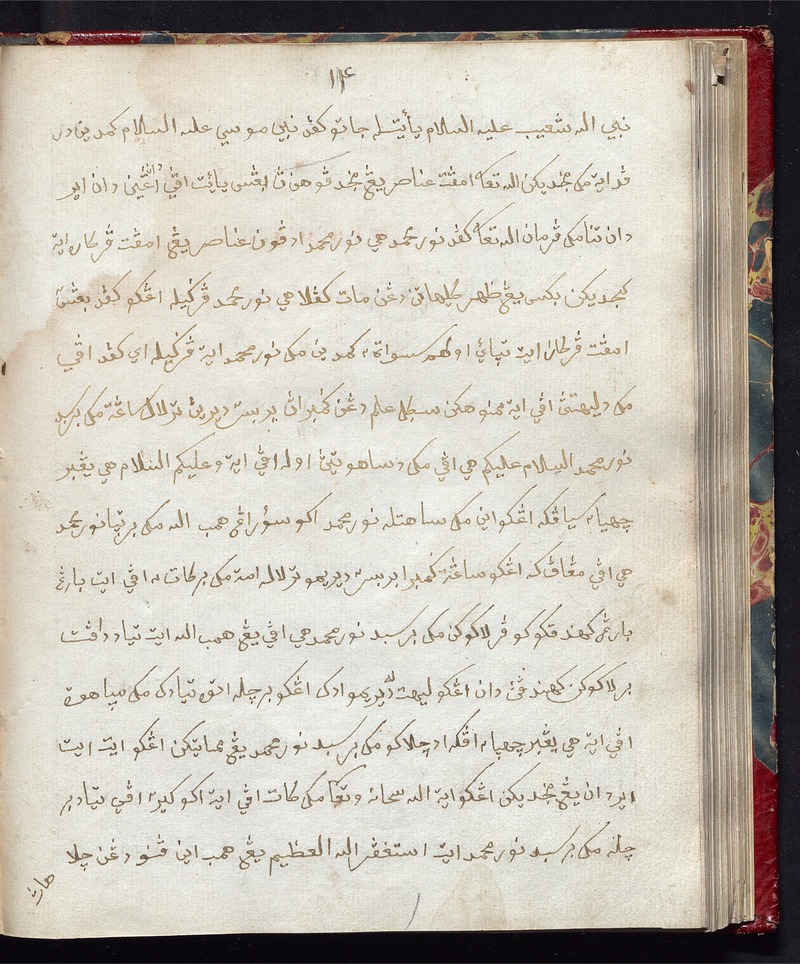 ١١٤
نبي الله شعيب عليه السلام يأيتله جاتو كفد نبي موسي عليه السلام كمدين در
فد ايت مك مجديكن الله تعالى امفت عناصر يڠ مجد قوهن ڽ بڠس يأيت اڤي اڠين دان اير
دان تانه مك فرمان الله تعالى كفد نور محمد هي نور محمد ادڤون عناصر يڠ امفت ڤركار ايت
كجديكن بكس يڠ ظهر دغن مات كڤلا هي نور محمد ڤرڬيله اڠكو كفد بڠس
امفت ڤركار ايت اولهم سسواتو كمدين مك نور محمد ايت ڤرڬيله اي كفد اڤي
مك دليهتڽ اڤي ايت ممنوهكن سكل عالم دڠن كمبران بربسر ديرين ترلال ساڠت مك بركات
نور محمد السلام عليكم هي اڤي مك دساهوتڽ اوله اڤي ايت وعليكم السلام هي يڠبر
چهيا سياڤكه اڠكو اين مك ساهتله نور محمد اكو سؤرڠ همب الله مك برتيا نور محمد
هي اڤي مڠاڤكه اڠكو ساڠت كمبيرا بربسر ديريمو ترلالو امت مك بركات اڤي ايت بارڠ
بارڠ كهندقكو كو ڤرلاكوكن مك برسبد نور محمد هي اڤي يڠ همب الله ايت تياد داڤت
برلاكوكن كهندقڽ دان اڠكو ليهت ديريمو ادكه اڠكو برچله اتو تيادكه مك مياهوت
اڤي ايت هي يڠبر چهيا اڤكه اد چلاكو مك برسبد نور محمد يڠ مماتيكن اڠكو ايت ايت
اير دان يڠ مجديكن اڠكو ايت الله سبحانه وتعالى مك كات اڤي ايت اكو كيرا اڤي تياد بر
چله مك برسبد نور محمد ايت استغفر الله العظيم يڠ همب اين ڤنو دڠن چلا
مات